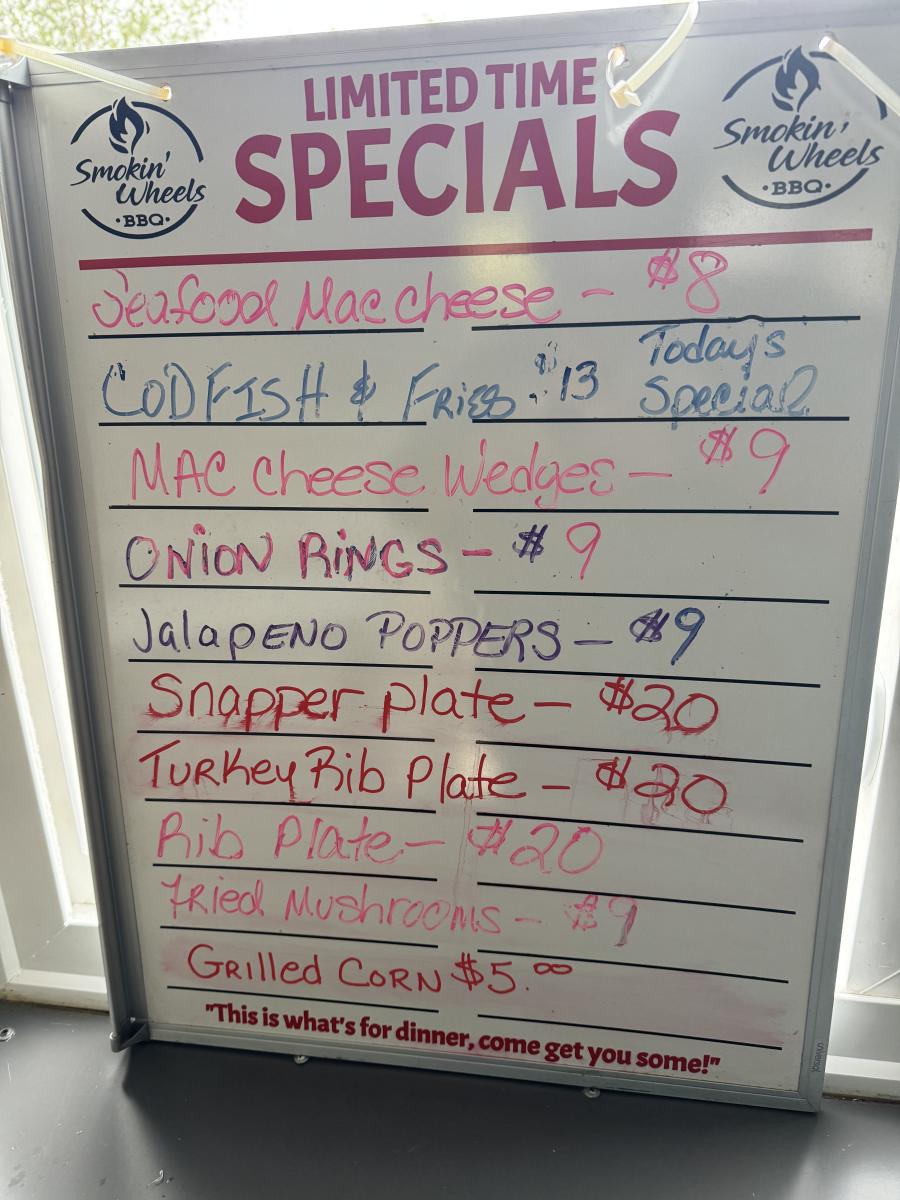 LIMITED TIME
SPECIALS
Smokin'
Wheels
BBQ
Smokin'
Wheels
BBQ
Seafood Mac cheese - $8
CODFISH & FRIES $13 Today's
Special
MAC cheese Wedges - $9
ONION RINGS - $9
JalapENO POPPERS - $9
Snapper plate - $20
TURKey Rib Plate - $20
Rib Plate - $20
FRied MushROOMS - $9
GRilled CORN $5.00
"This is what's for dinner, come get you some!"